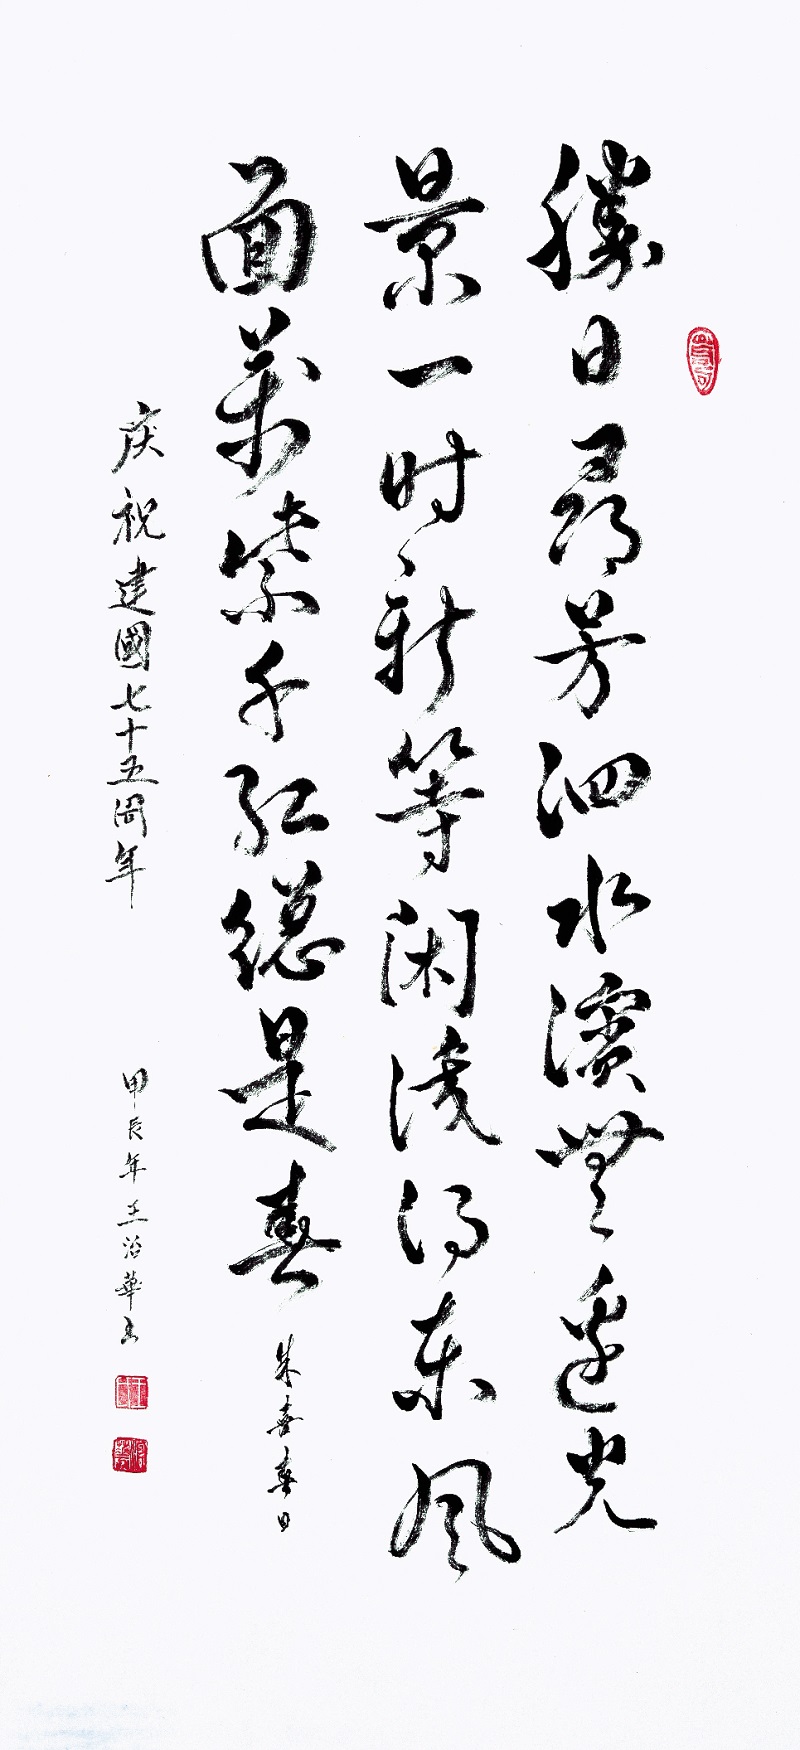 勝日尋芳泗水濱無邊光
景一时新等闲識得東風
面萬紫千红總是春
朱熹春日
庆祝建國七十五周年
甲辰年王治華书